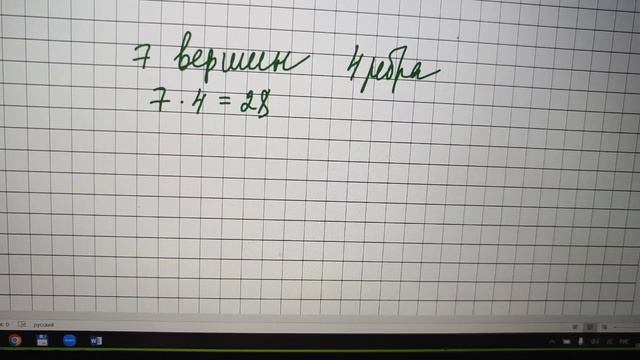 7 вершин 4 ребра
7 · 4 = 28
русский